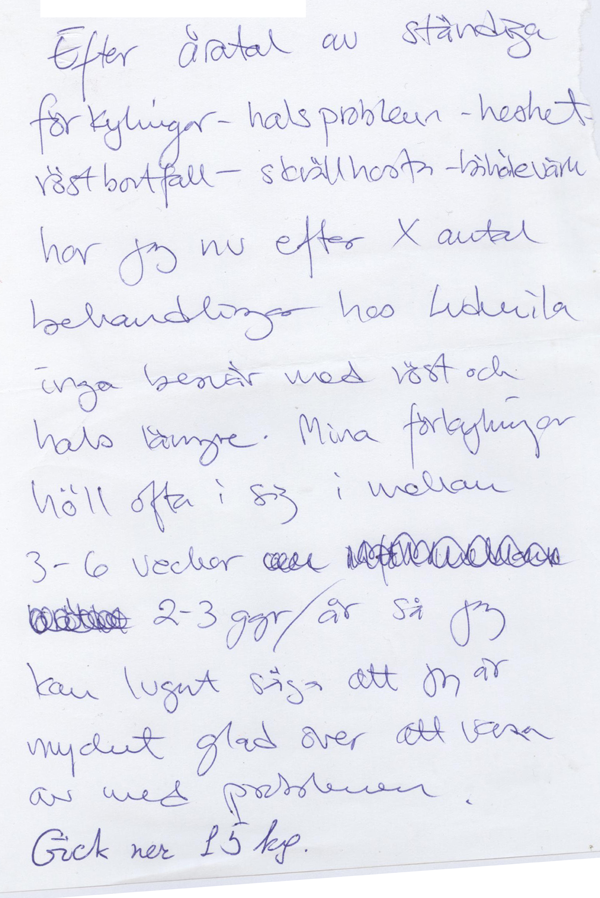 Efter åratal av ständiga
förkylningar - halsproblem - heshet -
röstbortfall - skrällhosta - bihålevärk
har jag nu efter X antal
behandlingar hos Ludmila
inga besvär med röst och
hals längre. Mina förkylningar
höll ofta i sig i mellan
3-6 veckor
2-3 ggr/år så jag
kan lugnt säga att jag är
mycket glad över att vara
av med problemen.
Gick ner 15 kg.